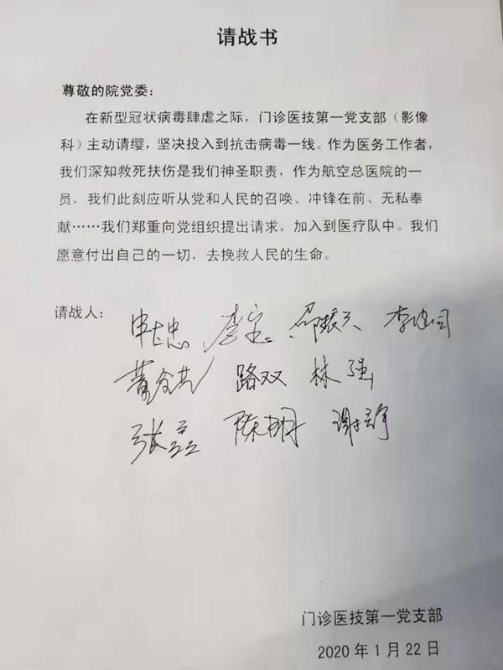 请战书
尊敬的院党委：
在新型冠状病毒肆虐之际，门诊医技第一党支部（影像
科）主动请缨，坚决投入到抗击病毒一线。作为医务工作者，
我们深知救死扶伤是我们神圣职责，作为航空总医院的一
员，我们此刻应听从党和人民的召唤、冲锋在前、无私奉
献……我们郑重向党组织提出请求，加入到医疗队中。我们
愿意付出自己的一切，去挽救人民的生命。
请战人：
路双 林强
陈明 谢静
门诊医技第一党支部
2020年1月22日